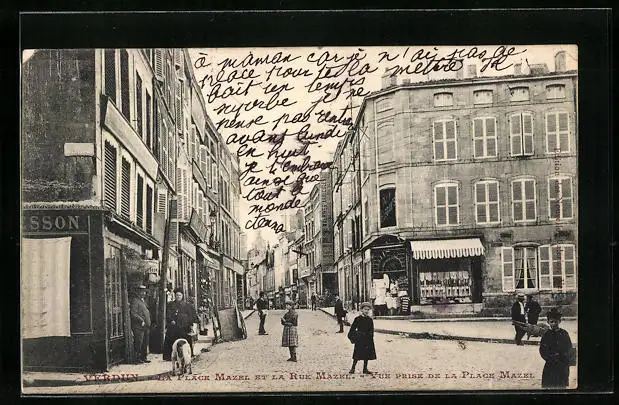 à maman car je n'ai pas de
place pour te la mettre
fait un temps
superbe je ne
pense pas rentrer
avant lundi
en huit
je t'embrasse
ainsi que
tout le
monde
SSON
VERDUN - LA PLACE MAZEL ET LA RUE MAZEL. - VUE PRISE DE LA PLACE MAZEL